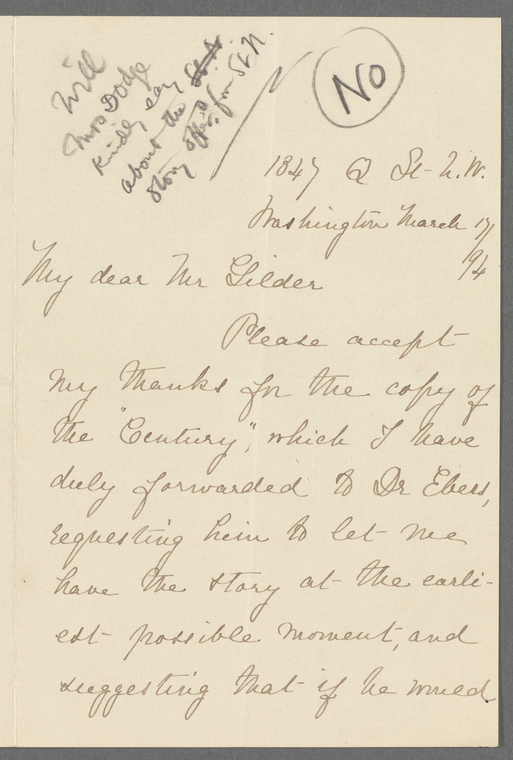 Will
Mrs Dodge
Kindly say
about the St. N.
story offd. for St. N.
No
1847 Q St- N.W.
Washington March 17/
94
My dear Mr Gilder
Please accept
my thanks for the copy of
the "Century", which I have
duly forwarded to Dr Ebers,
requesting him to let me
have the story at the earli-
est possible moment, and
suggesting that if he would